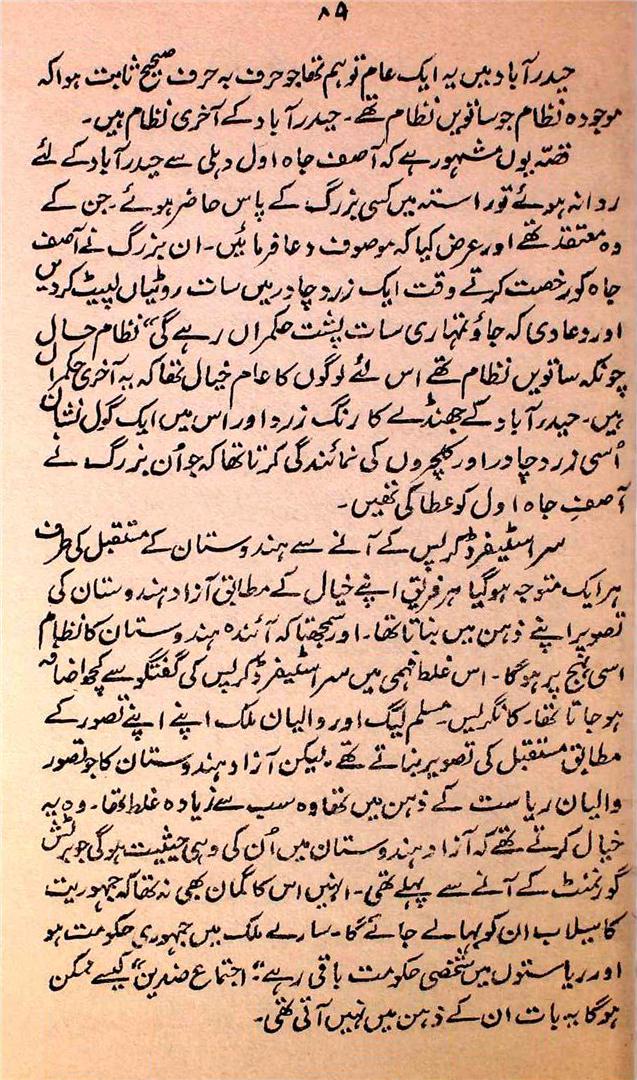 ۸۹
حیدرآباد میں یہ ایک عام توہم تھا جو حرف بہ حرف صحیح ثابت ہوا کہ
موجودہ نظام جو ساتویں نظام تھے۔ حیدرآباد کے آخری نظام ہیں۔
قصّہ یوں مشہور ہے کہ آصف جاہ اول دہلی سے حیدرآباد کے لئے
روانہ ہوئے تو راستہ میں کسی بزرگ کے پاس حاضر ہوئے۔ جن کے
وہ معتقد تھے اور عرض کیا کہ موصوف دعا فرمائیں۔ ان بزرگ نے آصف
جاہ کو رخصت کرتے وقت ایک زرد چادر میں سات روٹیاں لپیٹ کر دیں
اور دعا دی کہ جاؤ تمہاری سات پشت حکمراں رہے گی“ نظام حال
چونکہ ساتویں نظام تھے اس لئے لوگوں کا عام خیال تھا کہ یہ آخری حکمراں
ہیں۔ حیدرآباد کے جھنڈے کا رنگ زرد اور اس میں ایک گول نشان
اُسی زرد چادر اور کلچروں کی نمائندگی کرتا تھا کہ جو اُن بزرگ نے
آصفِ جاہ اول کو عطا کی تھیں۔
سر اسٹیفرڈ کرپس کے آنے سے ہندوستان کے مستقبل کی طرف
ہر ایک متوجہ ہو گیا ہر فریق اپنے خیال کے مطابق آزاد ہندوستان کی
تصویر اپنے ذہن میں بناتا تھا۔ اور سمجھتا کہ آئندہ ہندوستان کا نظام
اسی نہج پر ہوگا۔ اس غلط فہمی میں سر اسٹیفرڈ کرپس کی گفتگو سے کچھ اضافہ
ہو جاتا تھا۔ کانگریس۔ مسلم لیگ اور والیان ملک اپنے اپنے تصور کے
مطابق مستقبل کی تصویر بناتے تھے۔ لیکن آزاد ہندوستان کا جو تصور
والیان ریاست کے ذہن میں تھا وہ سب سے زیادہ غلط تھا۔ وہ یہ
خیال کرتے تھے کہ آزاد ہندوستان میں اُن کی وہی حیثیت ہوگی جو برٹش
گورنمنٹ کے آنے سے پہلے تھی۔ انہیں اس کا گمان بھی نہ تھا کہ جمہوریت
کا سیلاب ان کو بہا لے جائے گا۔ سارے ملک میں جمہوری حکومت ہو
اور ریاستوں میں شخصی حکومت باقی رہے۔ ”اجتماع ضدین“ کیسے ممکن
ہوگا یہ بات ان کے ذہن میں نہیں آتی تھی۔